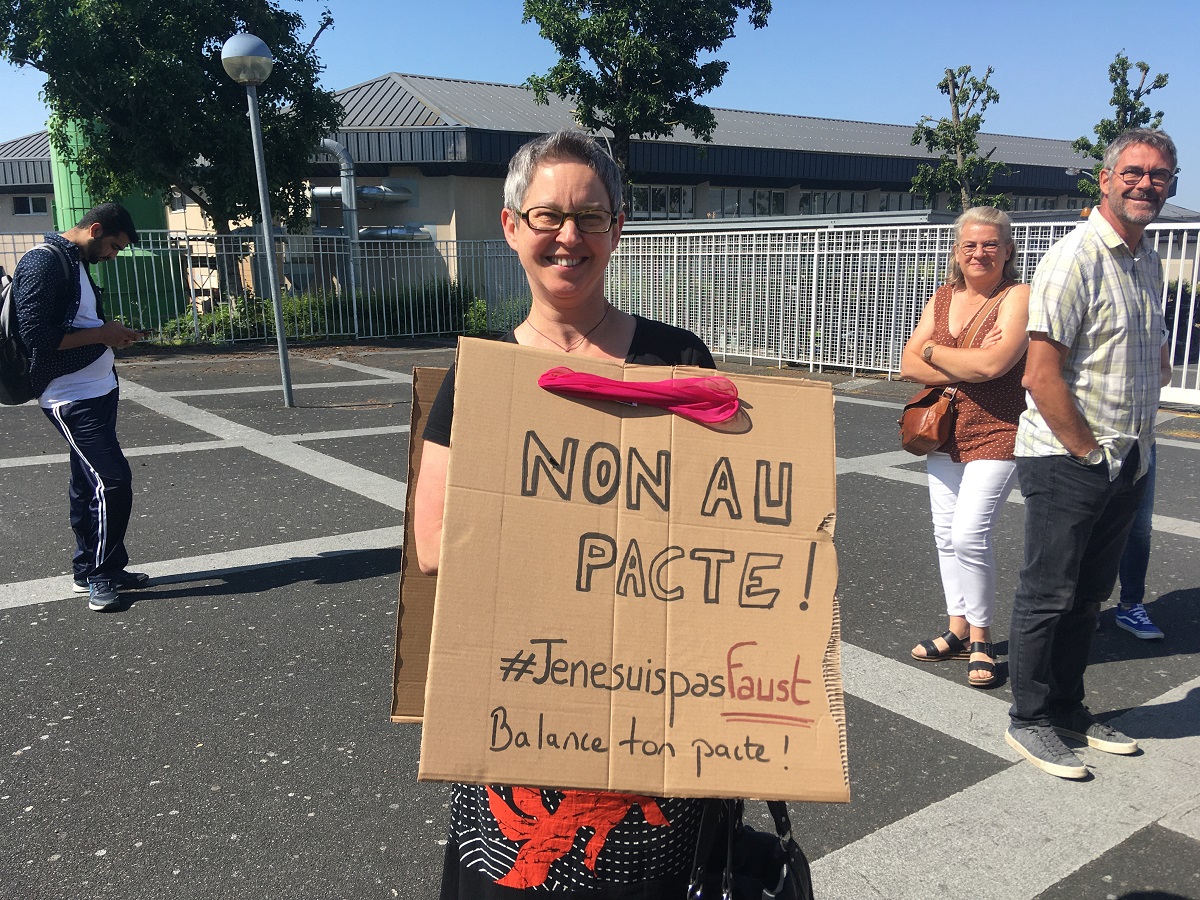 NON AU
PACTE !
#JenesuispasFaust
Balance ton pacte !